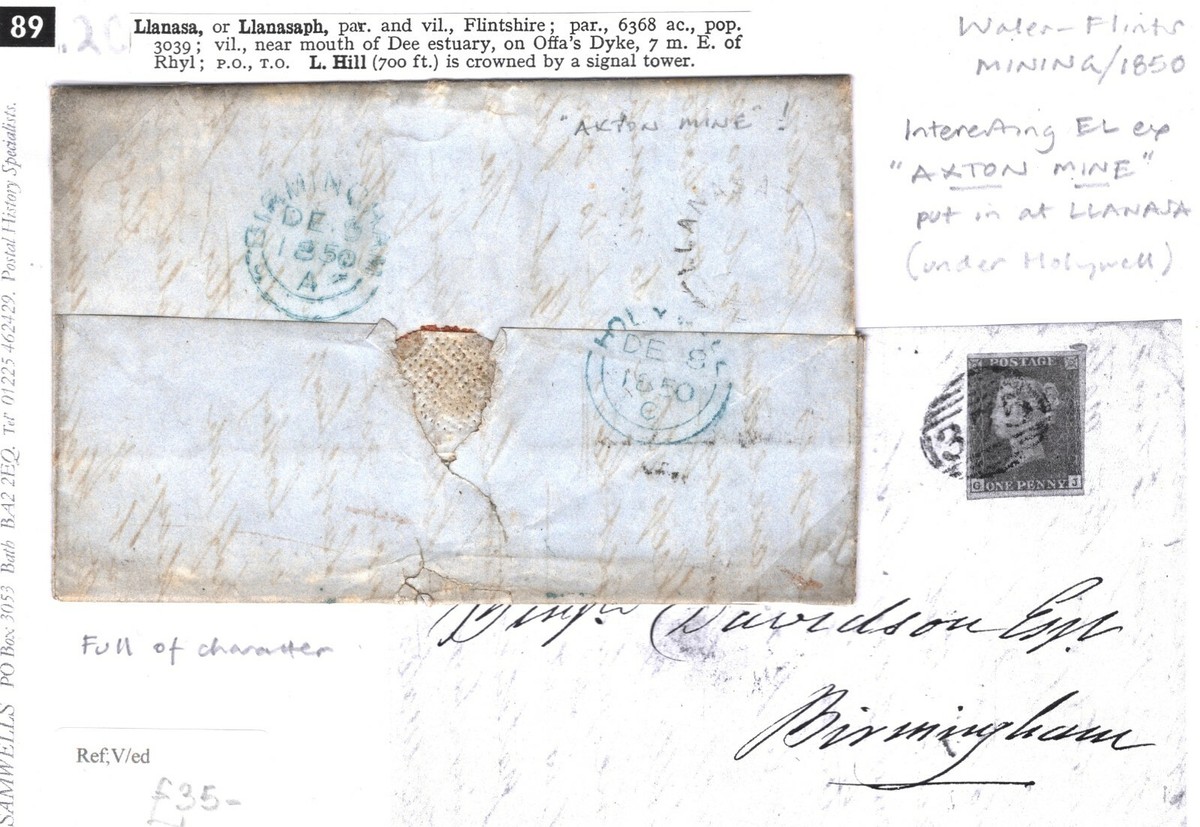 89
.20
Llanasa, or Llanasaph, par. and vil., Flintshire; par., 6368 ac., pop.
3039; vil., near mouth of Dee estuary, on Offa's Dyke, 7 m. E. of
Rhyl; P.O., T.O. L. Hill (700 ft.) is crowned by a signal tower.
Wales-Flints
MINING/1850
Interesting EL ex
"AXTON MINE"
put in at LLANASA
(under Holywell)
"AXTON MINE" !
DE. 8
1850
A
LLANASA
DE 8
1850
C
POSTAGE
G ONE PENNY J
Davidson Esqr
Birmingham
Full of character
Ref;V/ed
£35-
SAMWELLS PO Box 3053 Bath BA2 2EQ. Tel 01225 462429. Postal History Specialists.